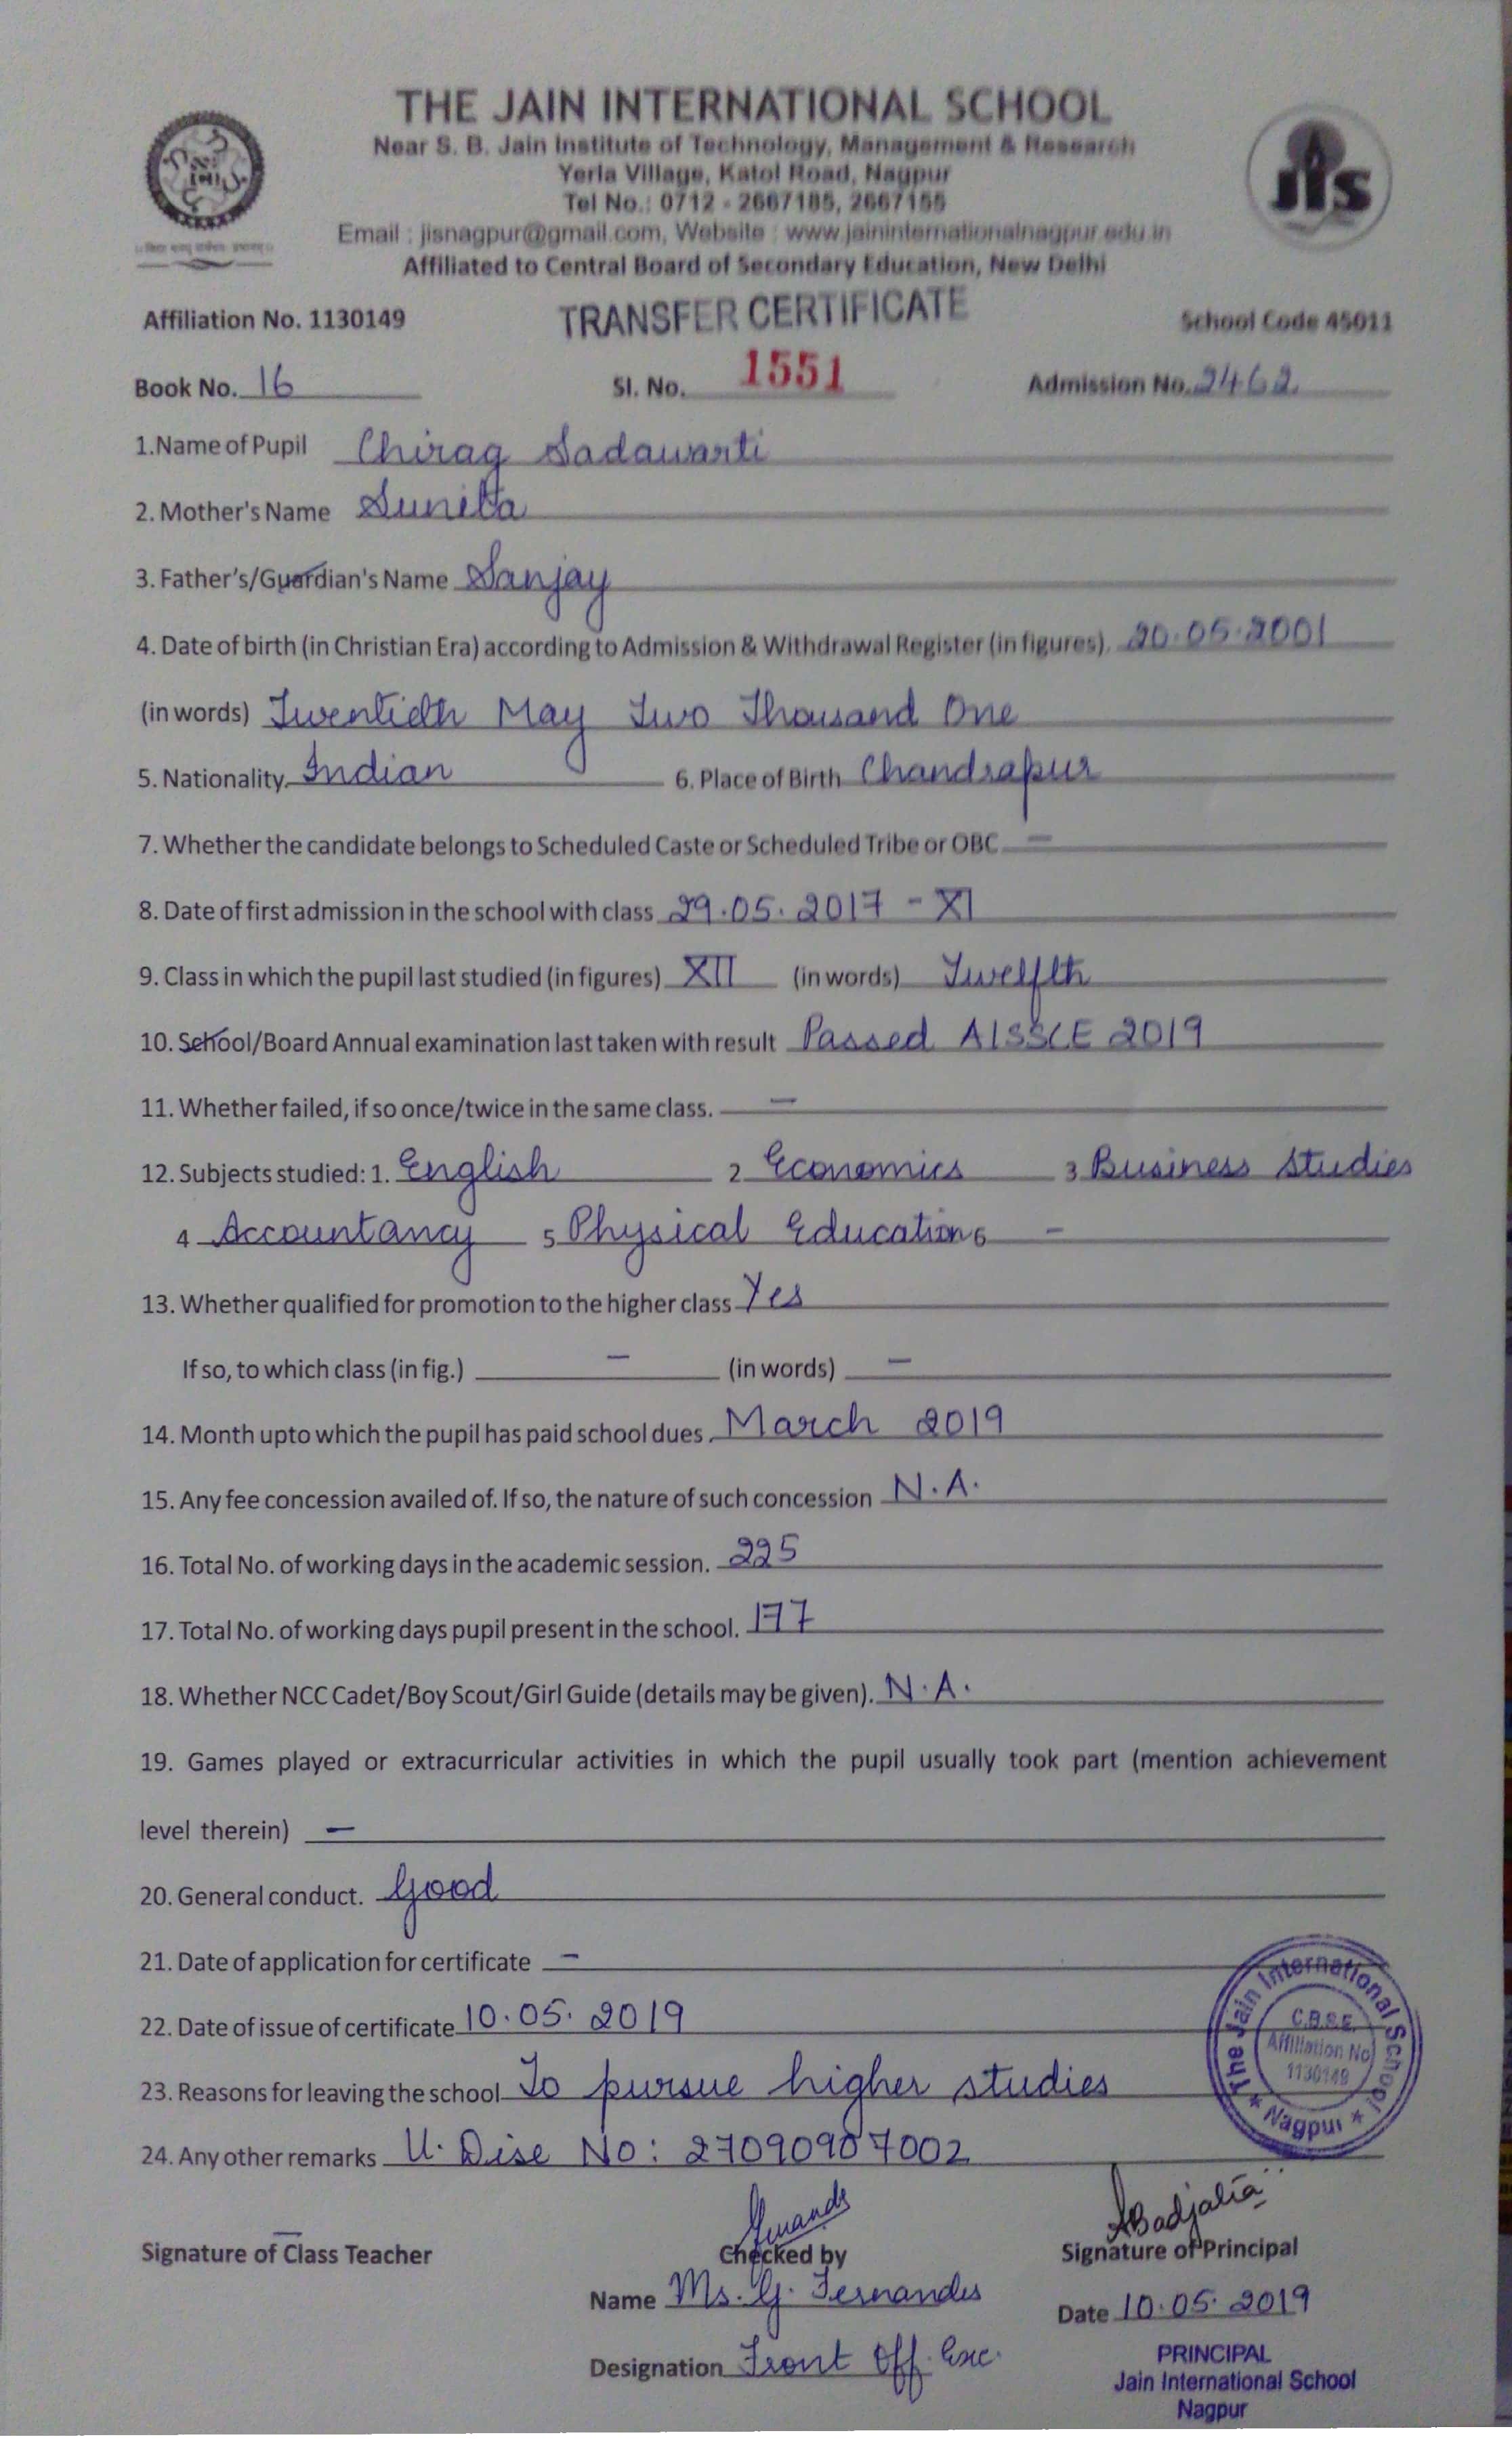 THE JAIN INTERNATIONAL SCHOOL
Near S. B. Jain Institute of Technology, Management & Research
Yerla Village, Katol Road, Nagpur
Tel No.: 0712 - 2667185, 2667155
Email : jisnagpur@gmail.com, Website : www.jaininternationalnagpur.edu.in
Affiliated to Central Board of Secondary Education, New Delhi
jIs
Affiliation No. 1130149 TRANSFER CERTIFICATE School Code 45011
Book No. 16 Sl. No. 1551 Admission No. 2462
1.Name of Pupil Chirag Sadawarti
2. Mother's Name Sunita
3. Father's/Guardian's Name Sanjay
4. Date of birth (in Christian Era) according to Admission & Withdrawal Register (in figures). 20.05.2001
(in words) Twentieth May Two Thousand One
5. Nationality. Indian 6. Place of Birth Chandrapur
7. Whether the candidate belongs to Scheduled Caste or Scheduled Tribe or OBC —
8. Date of first admission in the school with class 29.05.2017 - XI
9. Class in which the pupil last studied (in figures) XII (in words) Twelfth
10. School/Board Annual examination last taken with result Passed AISSCE 2019
11. Whether failed, if so once/twice in the same class. —
12. Subjects studied: 1. English 2 Economics 3 Business Studies
4 Accountancy 5 Physical Education 6 —
13. Whether qualified for promotion to the higher class Yes
If so, to which class (in fig.) — (in words) —
14. Month upto which the pupil has paid school dues. March 2019
15. Any fee concession availed of. If so, the nature of such concession N.A.
16. Total No. of working days in the academic session. 225
17. Total No. of working days pupil present in the school. 177
18. Whether NCC Cadet/Boy Scout/Girl Guide (details may be given). N.A.
19. Games played or extracurricular activities in which the pupil usually took part (mention achievement
level therein) —
20. General conduct. Good
21. Date of application for certificate —
22. Date of issue of certificate 10.05.2019
23. Reasons for leaving the school To pursue higher studies
24. Any other remarks U. Dise No: 27090907002
The Jain International School
C.B.S.E.
Affiliation No
1130149
* Nagpur *
Badjatia
Signature of Class Teacher Checked by Signature of Principal
Name Ms. G. Fernandes Date 10.05.2019
Designation Front Off. Exc.
PRINCIPAL
Jain International School
Nagpur